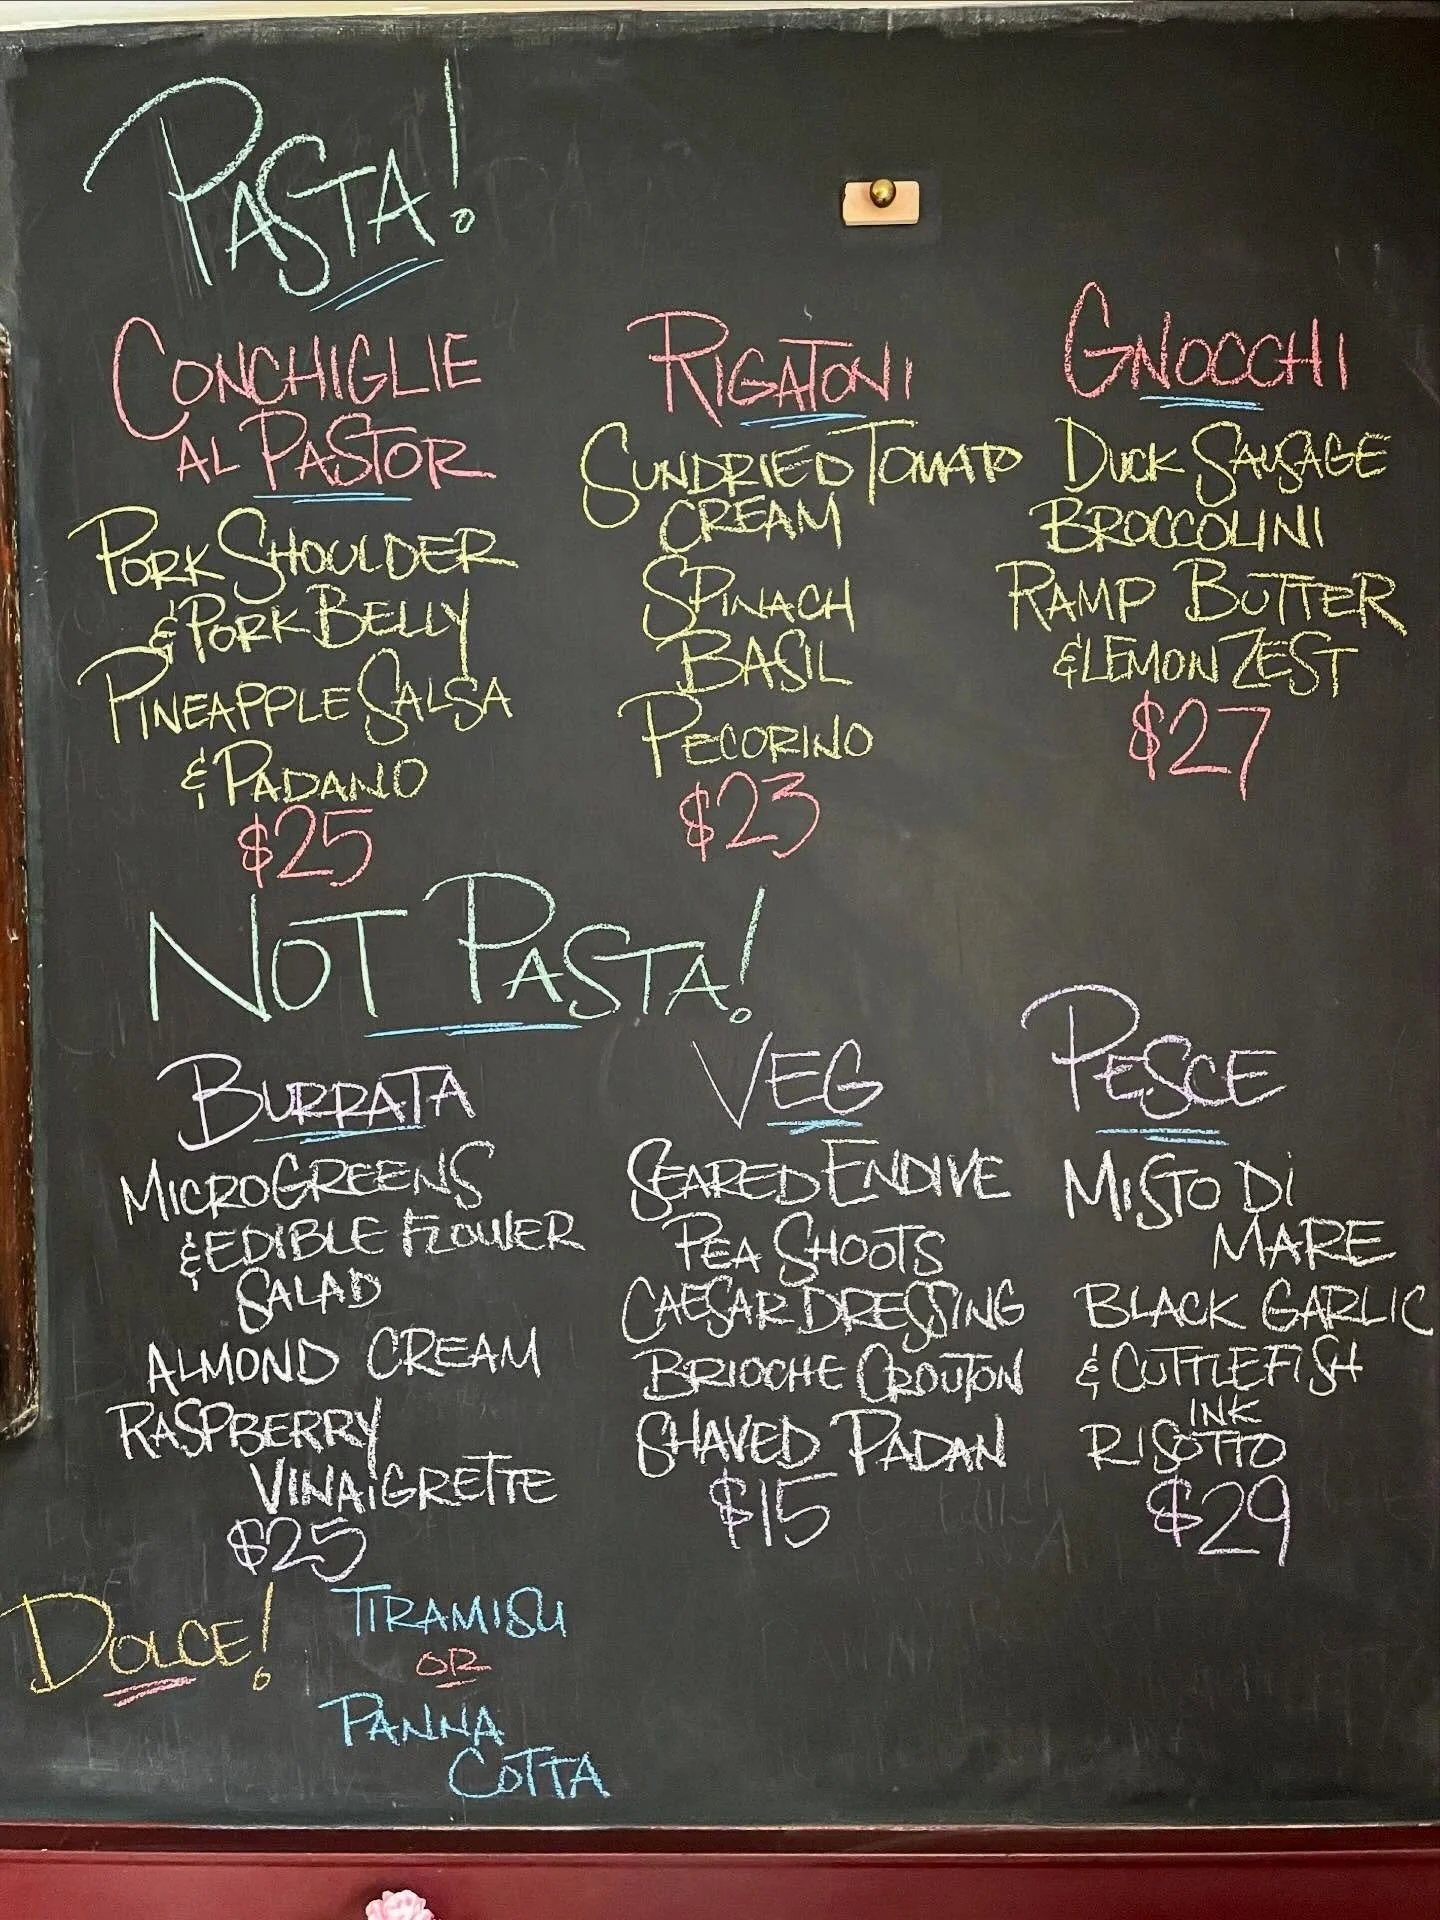 PASTA!
CONCHIGLIE
AL PASTOR
PORK SHOULDER
& PORK BELLY
PINEAPPLE SALSA
& PADANO
$25
RIGATONI
SUNDRIED TOMATO
CREAM
SPINACH
BASIL
PECORINO
$23
GNOCCHI
DUCK SAUSAGE
BROCCOLINI
RAMP BUTTER
& LEMON ZEST
$27
NOT PASTA!
BURRATA
MICROGREENS
& EDIBLE FLOWER
SALAD
ALMOND CREAM
RASPBERRY
VINAIGRETTE
$25
VEG
SEARED ENDIVE
PEA SHOOTS
CAESAR DRESSING
BRIOCHE CROUTON
SHAVED PADAN
$15
PESCE
MISTO Di
MARE
BLACK GARLIC
& CUTTLEFISH
INK
RISOTTO
$29
DOLCE!
TIRAMISU
OR
PANNA
COTTA